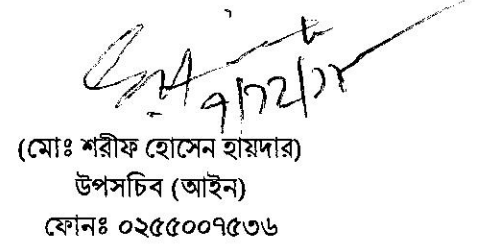 (মোঃ শরীফ হোসেন হায়দার)
উপসচিব (আইন)
ফোনঃ ০২৫৫০০৭৫৩৬